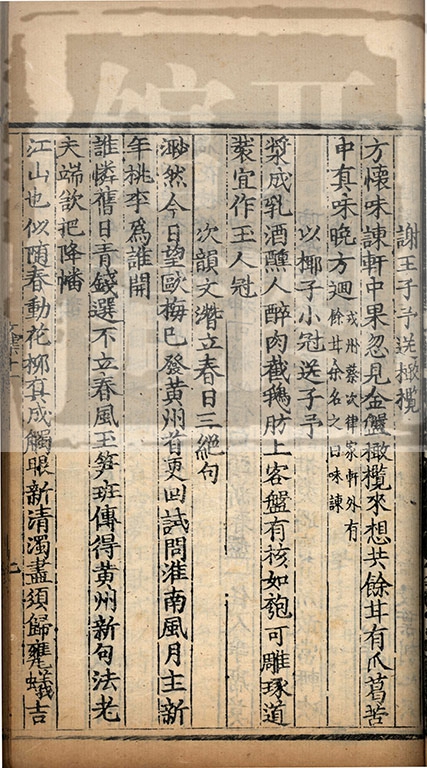 謝王子予送橄欖
方懷味諫軒中果忽見金盤橄欖來想共餘甘有瓜葛苦
中真味晚方迴戎州蔡次律家軒外有
餘甘余名之曰味諫
以椰子小冠送子予
漿成乳酒醺人醉肉截鵝肪上客盤有核如匏可雕琢道
裝宜作王人冠
次韻文潛立春日三絕句
渺然今日望歐梅已發黃州首更回試問淮南風月主新
年桃李為誰開
誰憐舊日青錢選不立春風玉筍班傳得黃州新句法老
夫端欲把降幡
江山也似隨春動花柳真成觸眼新清濁盡須歸甕蟻吉